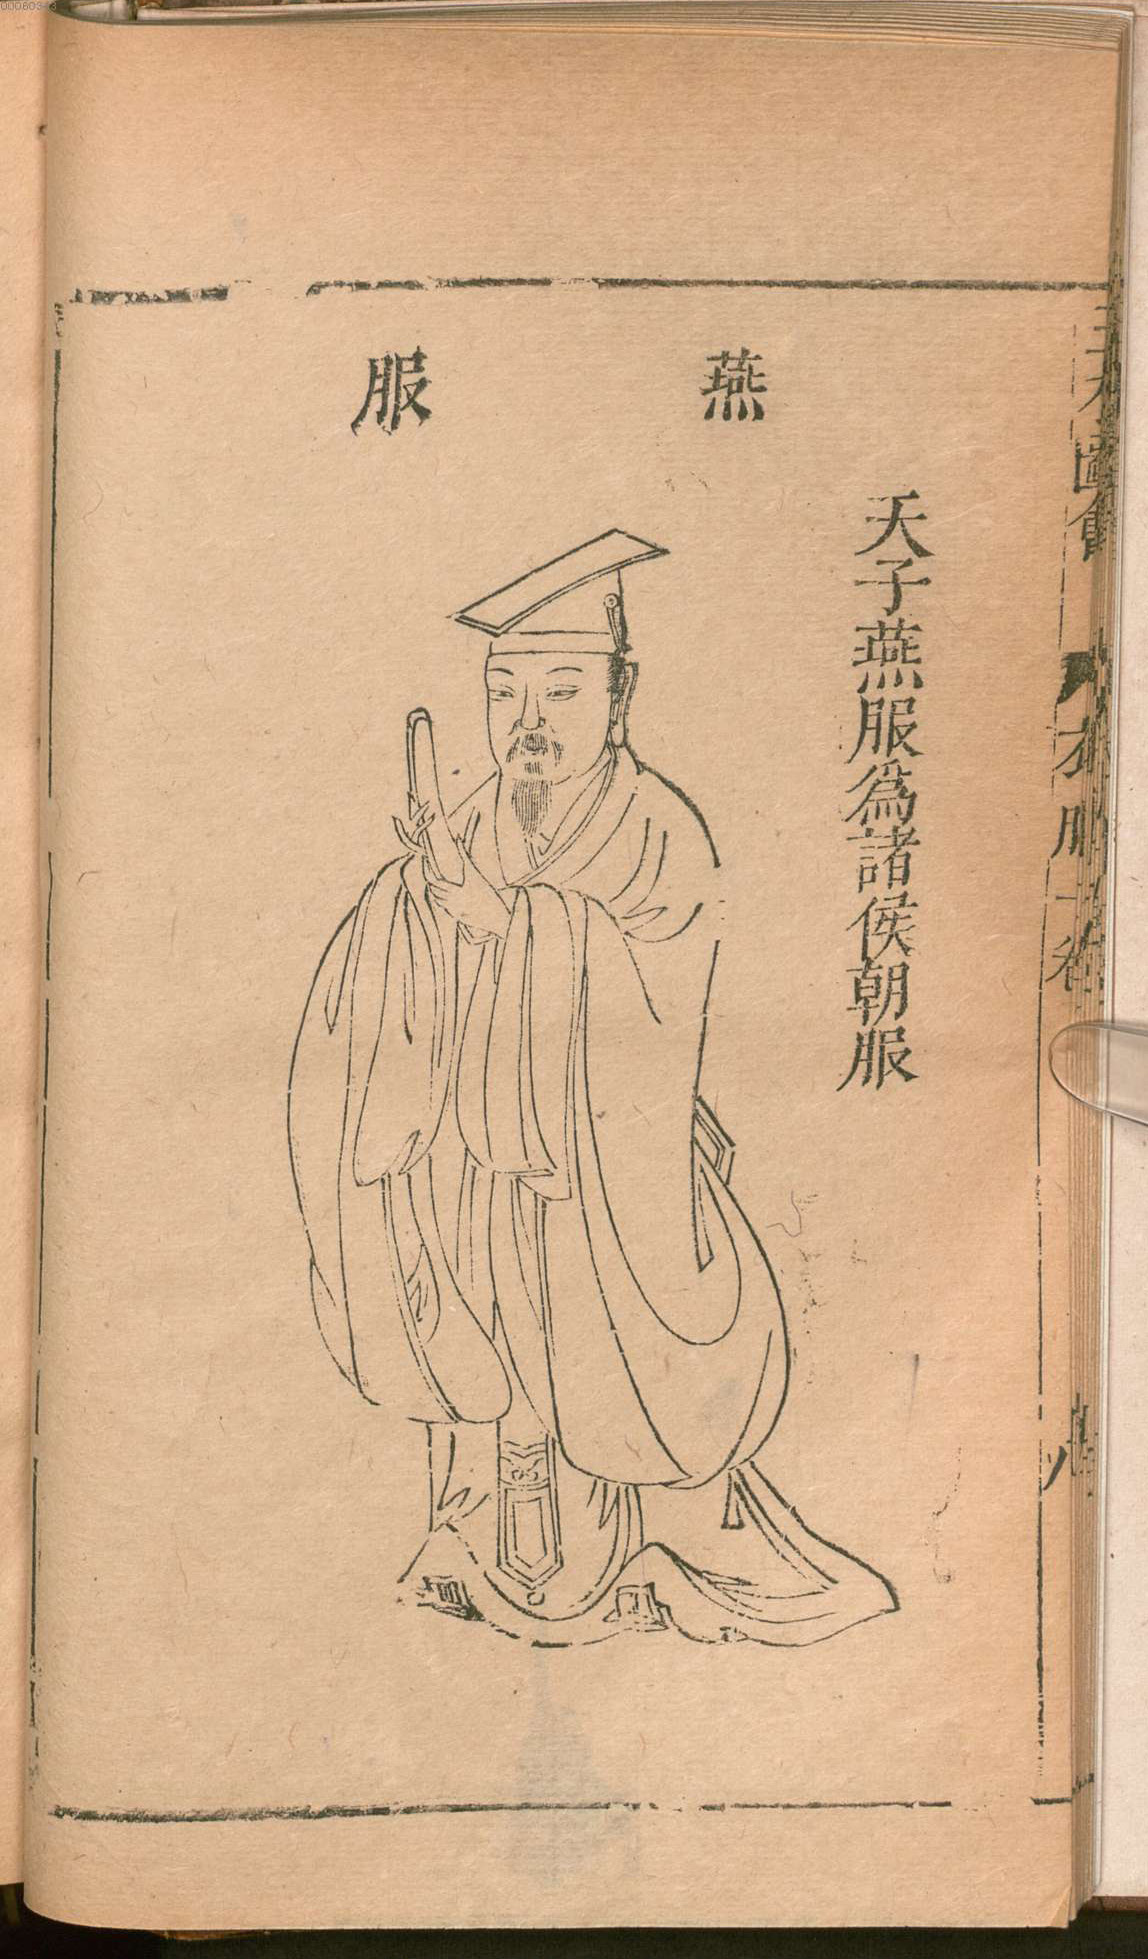 燕服
天子燕服爲諸侯朝服
圖會
衣服一卷